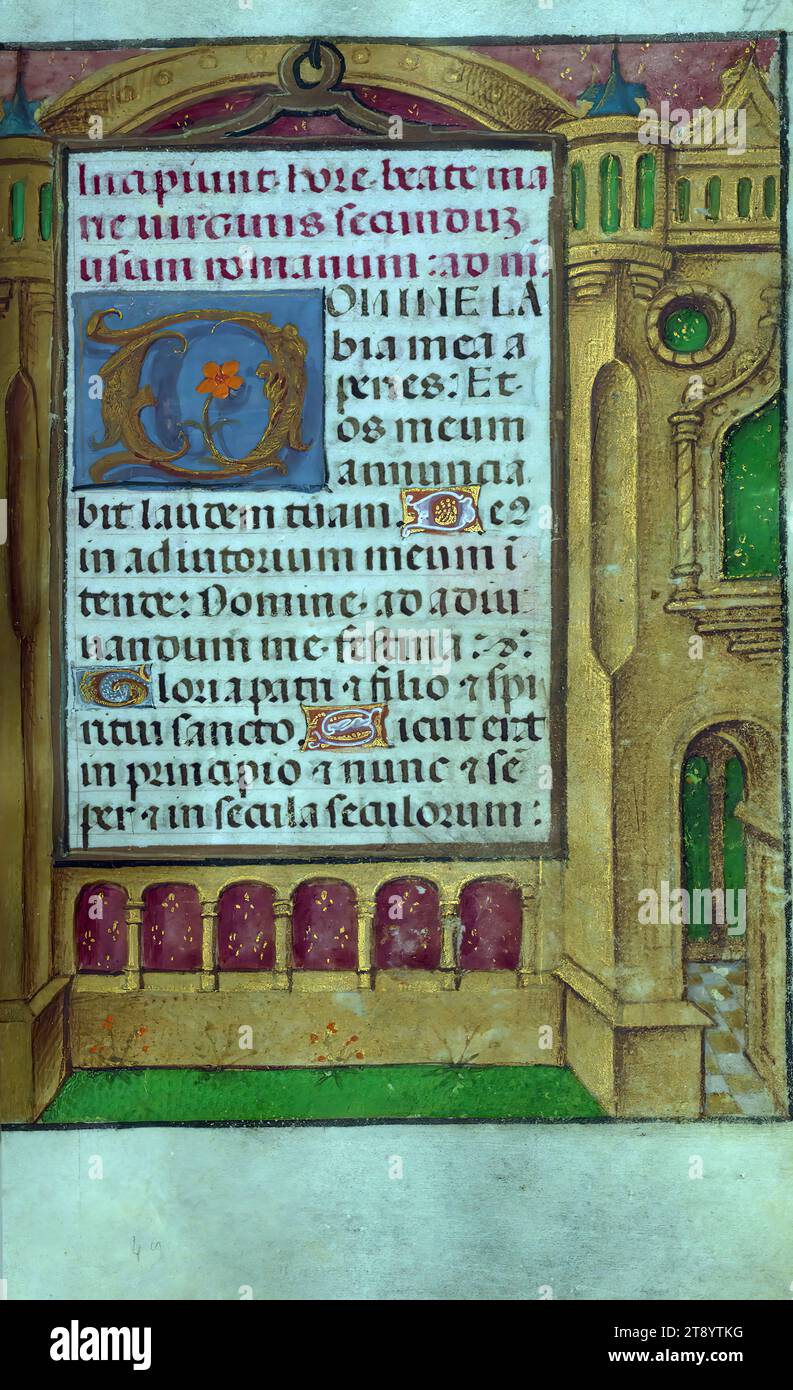 49
Incipiunt · hore · beate ma
rie virginis secunduʒ
usum romanum : ad m̄.
DOMINE LA
bia mea a
peries : Et
os meum
annuncia
bit laudem tuam. De9
in adiutorium meum ī
tende : Domine · ad adiu
uandum me · festina :
Gloria patri ⁊ filio ⁊ spi
ritui sancto Sicut erat
in principio ⁊ nunc ⁊ sē
per ⁊ in secula seculorum :
49
alamy
Image ID: 2T8YTKG
www.alamy.com